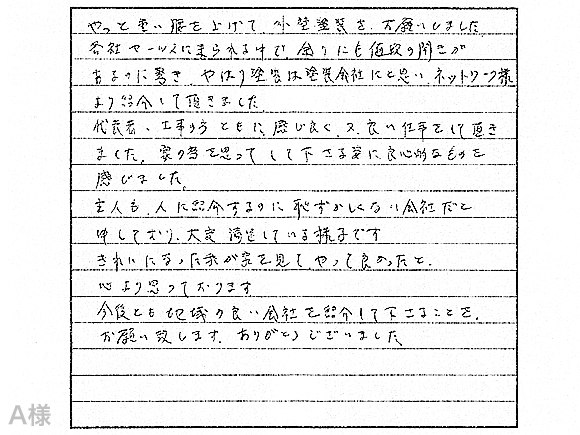 やっと重い腰を上げて、外壁塗装をお願いしました。
各社セールスに来られる中で、余りにも値段の開きが
あるのに驚き、やはり塗装は塗装会社にと思い、ネットワーク様
より紹介して頂きました。
代表者、工事の方ともに、感じ良く、又、良い仕事をして頂き
ました。家の者を思ってして下さる姿に良心的なものを
感じました。
主人も、人に紹介するのに恥ずかしくない会社だと
申しており、大変満足している様子です
きれいになった我が家を見て、やって良かったと、
心より思っております
今後とも地域の良い会社を紹介して下さることを、
お願い致します。ありがとうございました。
A様